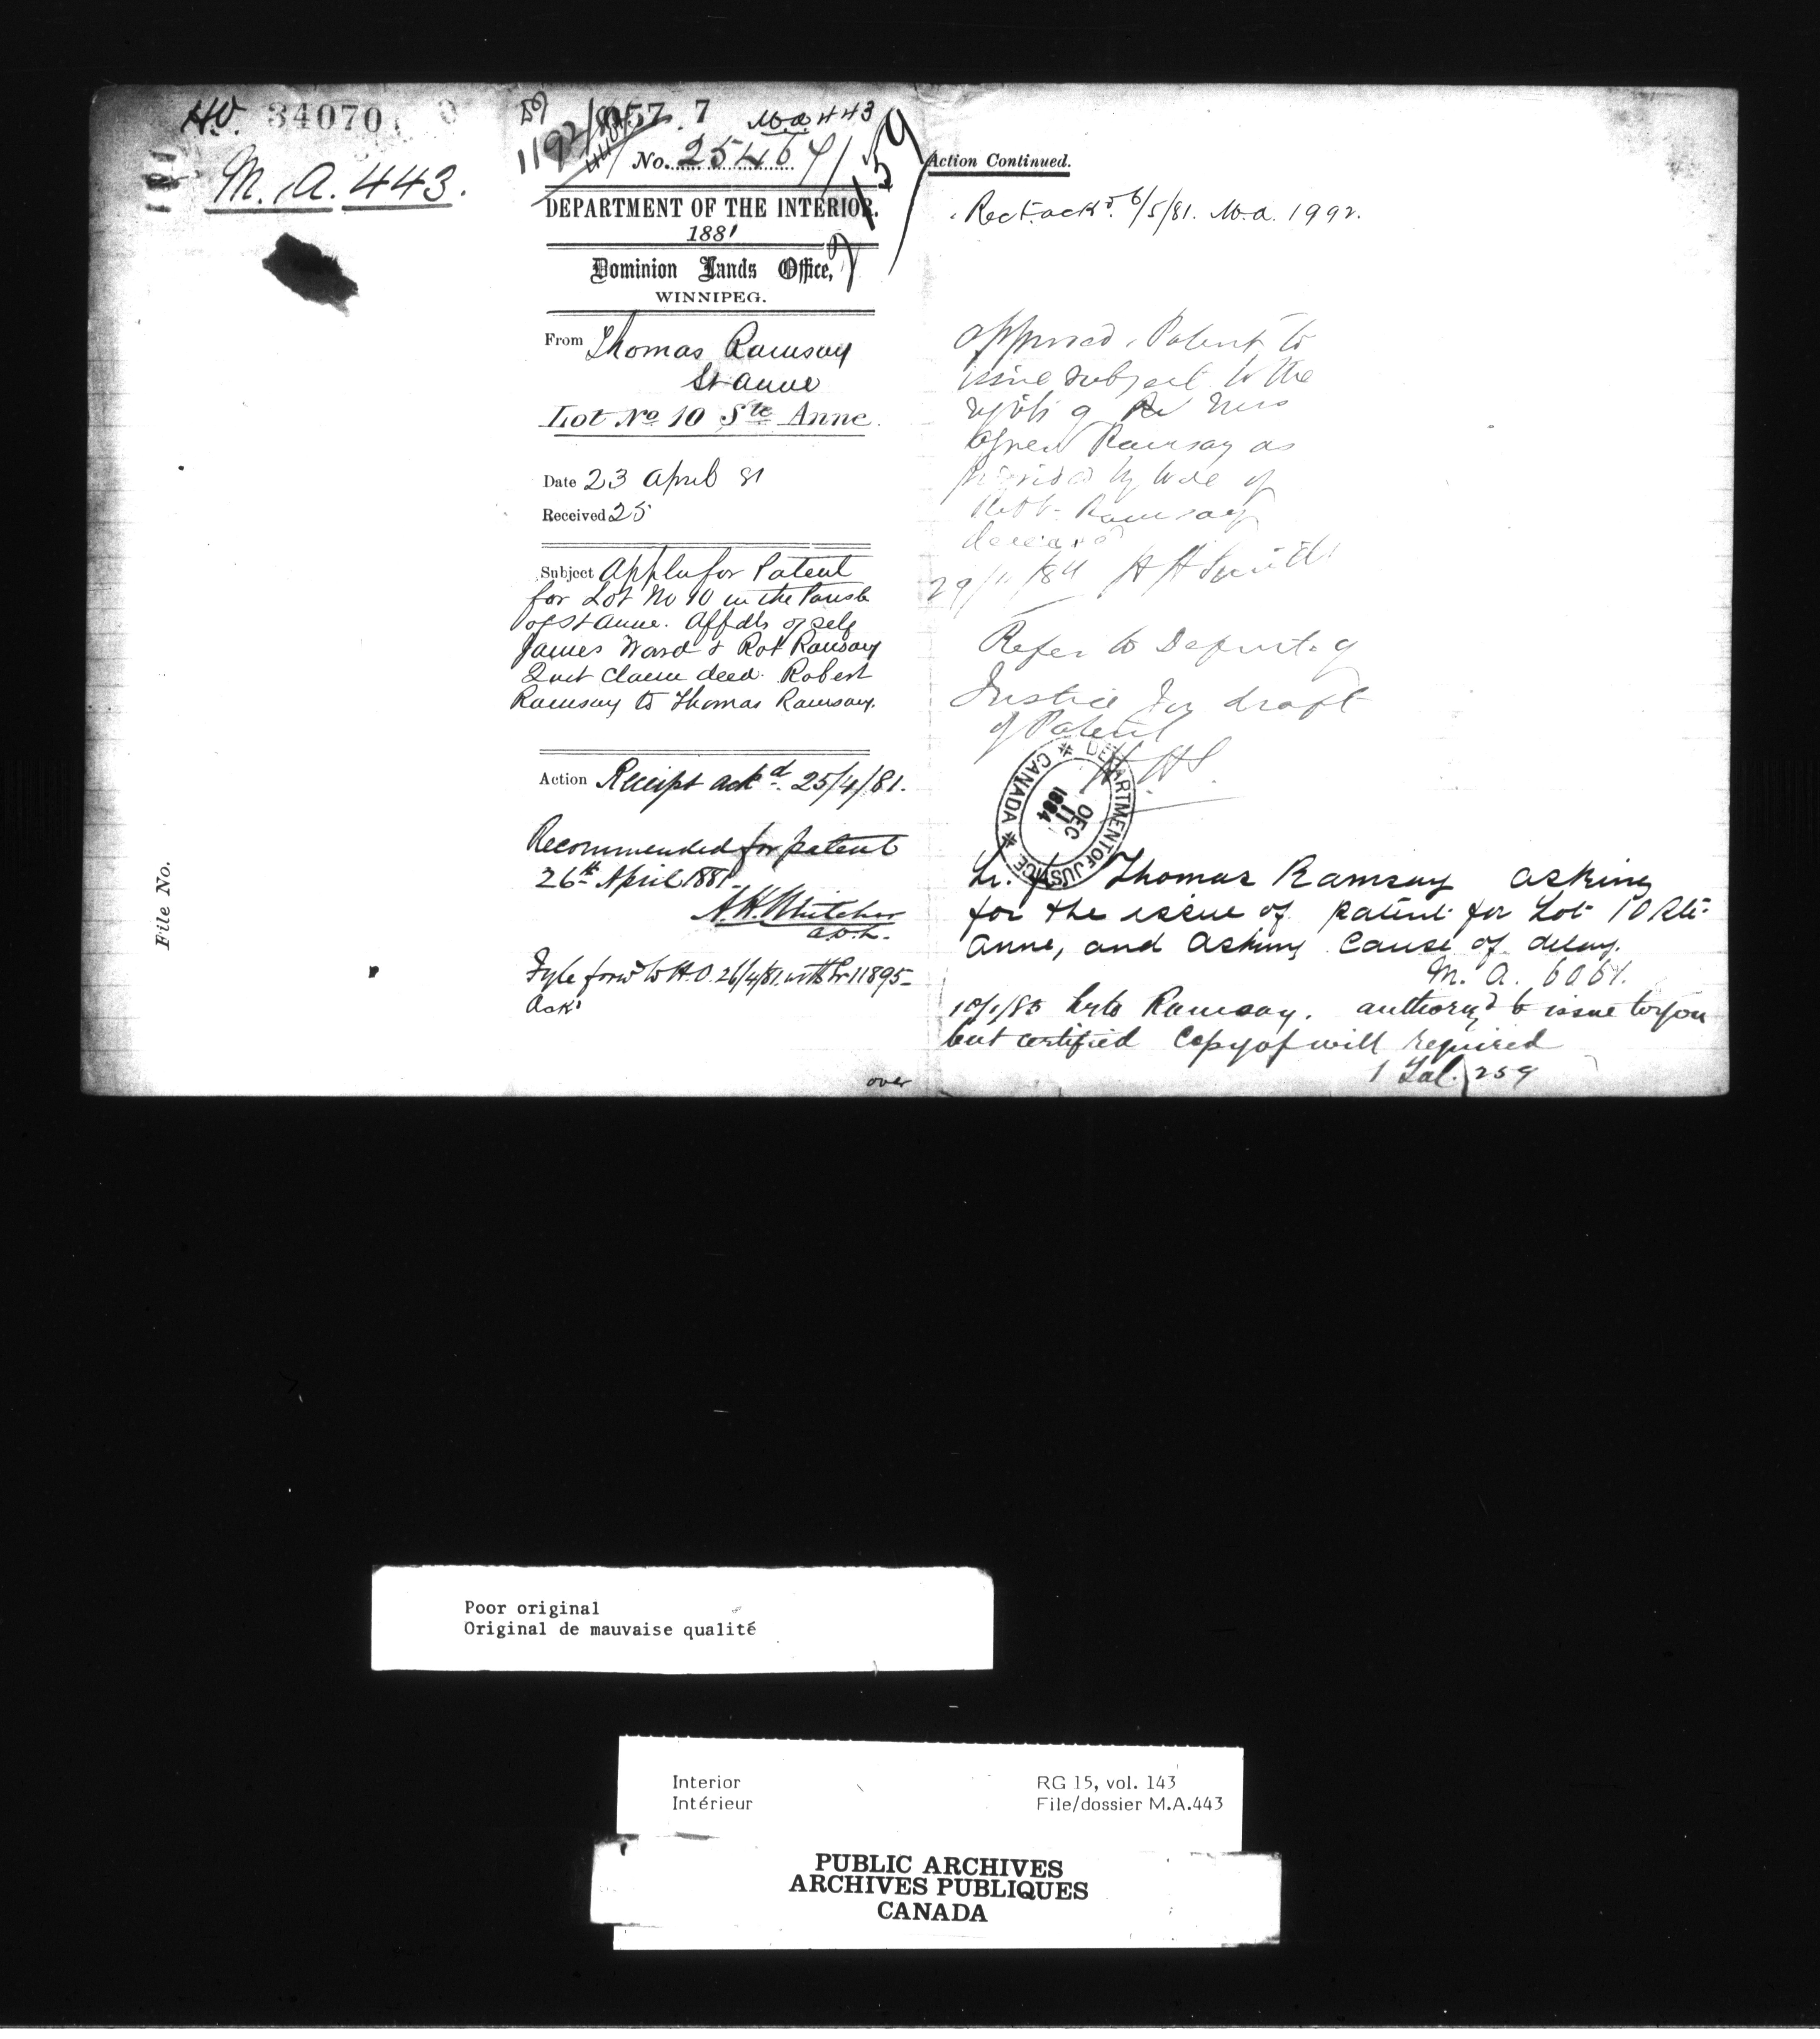 H.O. 34070
M.A. 443.
File No.
57.7 M.a 443
No. 25467
159
DEPARTMENT OF THE INTERIOR.
1881
Dominion Lands Office,
WINNIPEG.
From Thomas Ramsay
St Anne
Lot No 10 Ste Anne.
Date 23 April 81
Received 25
Subject Appln for Patent
for Lot No 10 in the Parish
of St Anne. Affdts of self
James Ward & Rot Ramsay
Quit Claim deed. Robert
Ramsay to Thomas Ramsay.
Action Receipt ackd. 25/4/81.
Recommended for patent
26th April 1881.
A.H. Whitcher
Fyle forwd to H.O. 26/4/81. with Lr 11895
Ackd
over
Action Continued.
Rect. ackd. 6/5/81. M.a. 1992.
Approved, Patent to
issue subject to the
rights of Mrs
Agnes Ramsay as
provided by will of
Robt. Ramsay
deceased
29/11/84 H H Smith
Refer to Depart. of
Justice for draft
of Patent
HHS.
DEPARTMENT OF JUSTICE
CANADA
DEC
11
1884
Lr. f. Thomas Ramsay asking
for the issue of patent for Lot 10 Ste.
Anne, and asking cause of delay.
M. A. 6061.
10/1/85 Lr to Ramsay. authorzd to issue to you
but certified Copy of will required
259
Poor original
Original de mauvaise qualité
Interior
Intérieur
RG 15, vol. 143
File/dossier M.A.443
PUBLIC ARCHIVES
ARCHIVES PUBLIQUES
CANADA